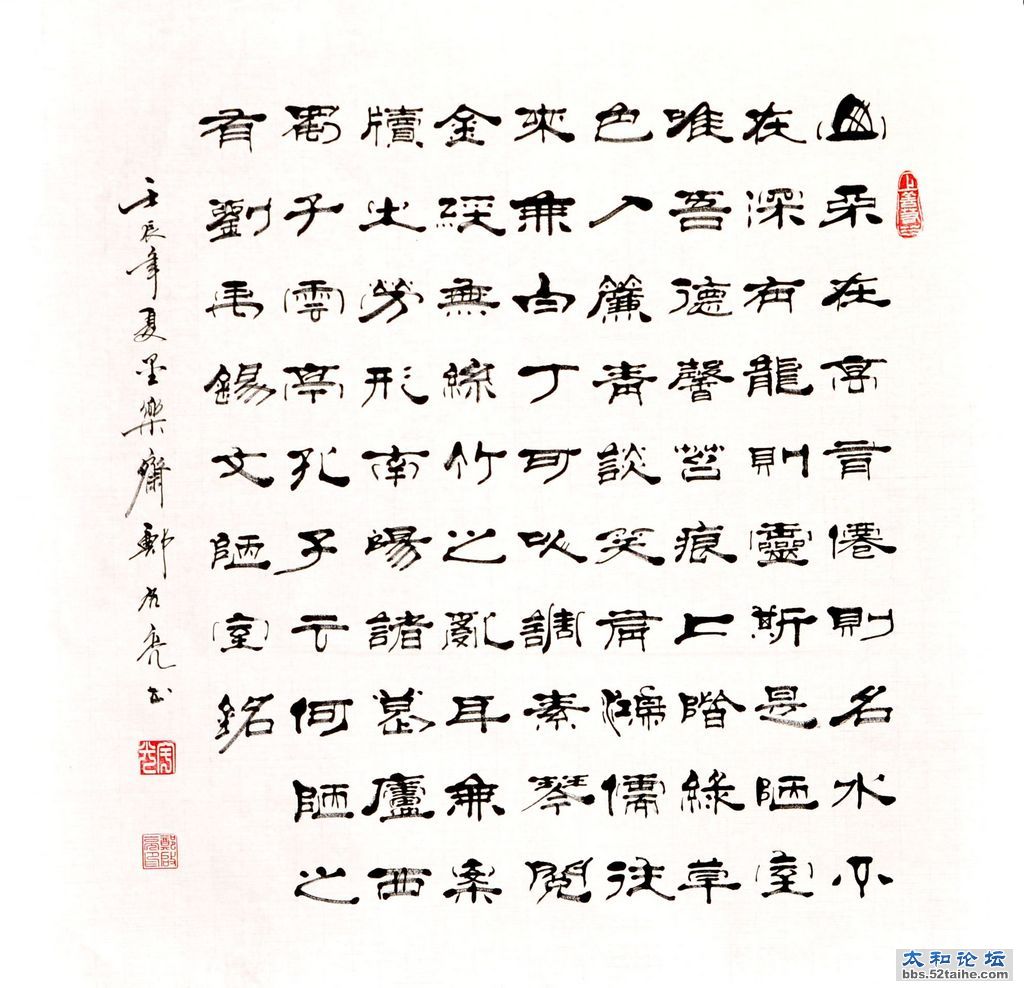 山不在高有僊則名水不
在深有龍則靈斯是陋室
唯吾德馨苔痕上階綠草
色入簾青談笑有鴻儒往
來無白丁可以調素琴閱
金經無絲竹之亂耳無案
牘之勞形南陽諸葛廬西
蜀子雲亭孔子云何陋之
有劉禹錫文陋室銘
壬辰年夏墨樂齋鄭启亮书
太和论坛
bbs.52taihe.com